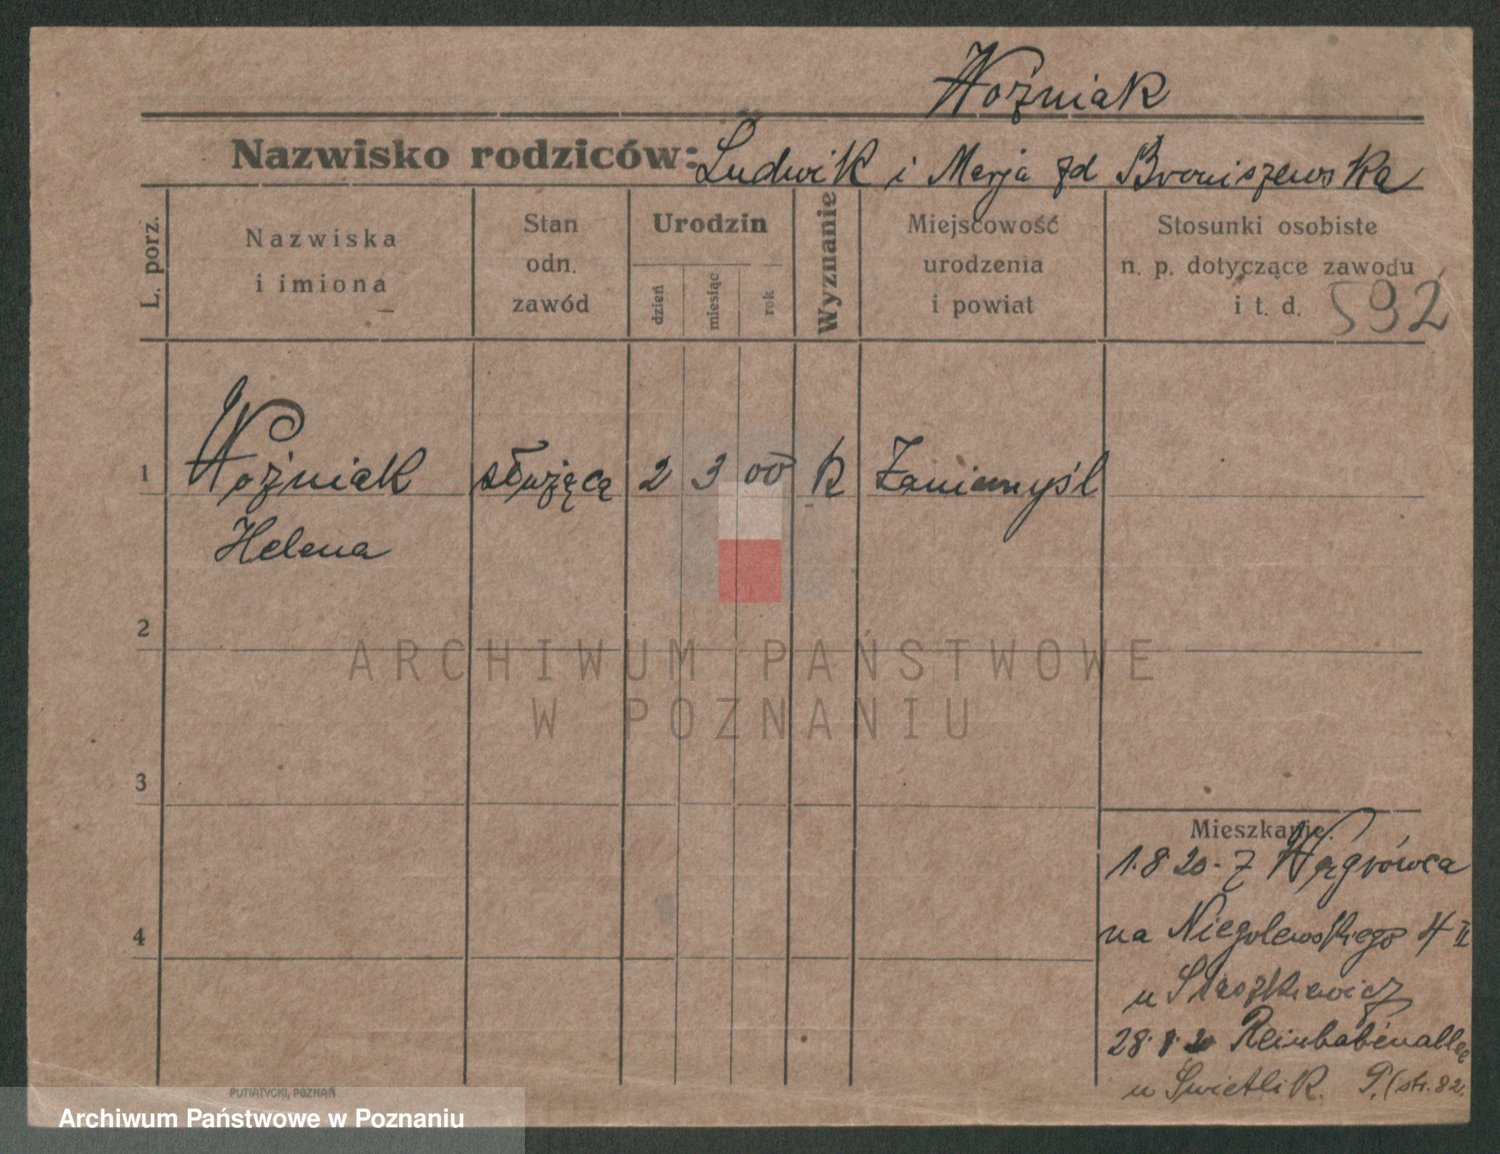 Woźniak
Nazwisko rodziców: Ludwik i Marja zd Broniszewska
L. porz.
Nazwiska
i imiona
Stan
odn.
zawód
Urodzin
dzień
miesiąc
rok
Wyznanie
Miejscowość
urodzenia
i powiat
Stosunki osobiste
n. p. dotyczące zawodu
i t. d. 592
1 Woźniak służąca 2 3 00 k Zaniemyśl
Helena
2
ARCHIWUM PAŃSTWOWE
W POZNANIU
3
Mieszkanie.
1.8 20 - z Wągrówca
4
na Niegolewskiego 4 II
u
28. 20 Reinbabenallee
u Świetlik. P. (str. 82.
PUTIATYCKI, POZNAŃ
Archiwum Państwowe w Poznaniu